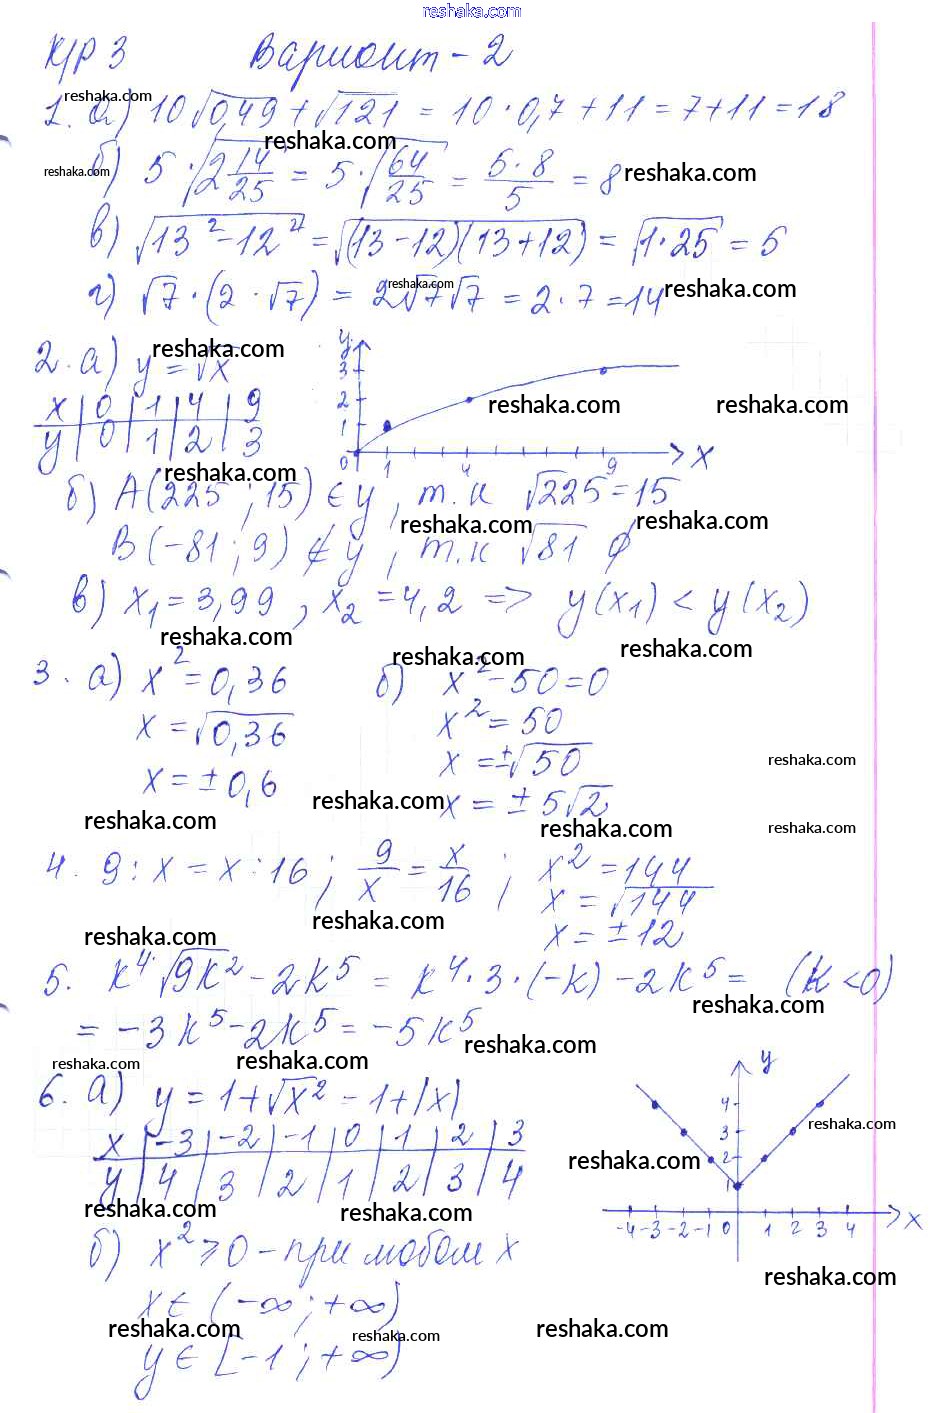 reshaka.com
К/Р 3 Вариант - 2
1. а) 10√0,49 + √121 = 10 · 0,7 + 11 = 7 + 11 = 18
б) 5 · √(2 14/25) = 5 · √(64/25) = (5 · 8)/5 = 8
в) √(13² - 12²) = √((13 - 12)(13 + 12)) = √(1 · 25) = 5
г) √7 · (2 · √7) = 2√7√7 = 2 · 7 = 14
2. а) y = √x
x | 0 | 1 | 4 | 9
y | 0 | 1 | 2 | 3
y
3
2
1
0 1 4 9 x
б) A(225 ; 15) ∈ y, т.к √225 = 15
B(-81 ; 9) ∉ y, т.к √81 ∅
в) x₁ = 3,99, x₂ = 4,2 => y(x₁) < y(x₂)
3. а) x² = 0,36
x = √0,36
x = ± 0,6
б) x² - 50 = 0
x² = 50
x = ±√50
x = ± 5√2
4. 9 : x = x : 16 ; 9/x = x/16 ; x² = 144
x = √144
x = ± 12
5. k⁴ · √(9k²) - 2k⁵ = k⁴ · 3 · (-k) - 2k⁵ = (k < 0)
= -3k⁵ - 2k⁵ = -5k⁵
6. а) y = 1 + √x² - 1 + |x|
x | -3 | -2 | -1 | 0 | 1 | 2 | 3
y | 4 | 3 | 2 | 1 | 2 | 3 | 4
y
4
3
2
1
-4 -3 -2 -1 0 1 2 3 4 x
б) x² ≥ 0 - при любом x
x ∈ (-∞ ; +∞)
y ∈ [-1 ; +∞)